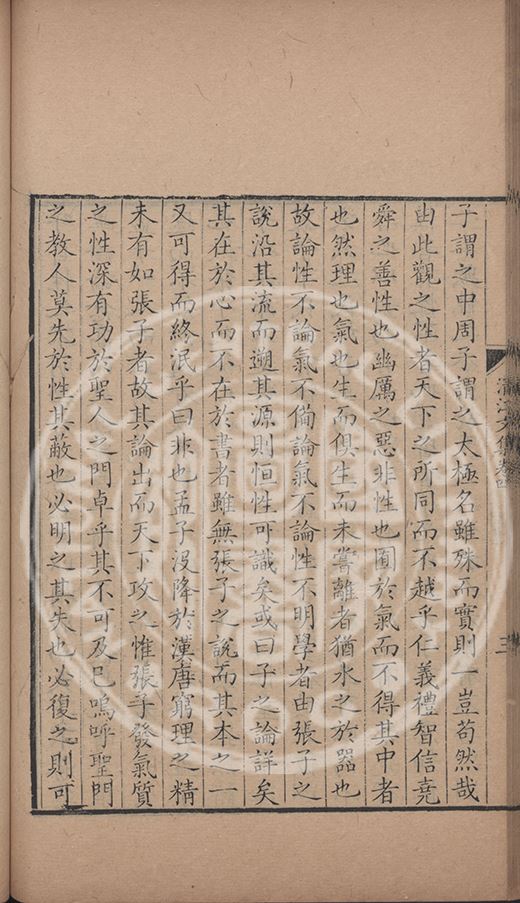 子謂之中周子謂之太極名雖殊而實則一豈苟然哉
由此觀之性者天下之所同而不越乎仁義禮智信堯
舜之善性也幽厲之惡非性也囿於氣而不得其中者
也然理也氣也生而俱生而未嘗離者猶水之於器也
故論性不論氣不備論氣不論性不明學者由張子之
說沿其流而遡其源則恒性可識矣或曰子之論詳矣
其在於心而不在於書者雖無張子之說而其本之一
又可得而終泯乎曰非也孟子没降於漢唐窮理之精
未有如張子者故其論出而天下攻之惟張子發氣質
之性深有功於聖人之門卓乎其不可及已嗚呼聖門
之教人莫先於性其蔽也必明之其失也必復之則可